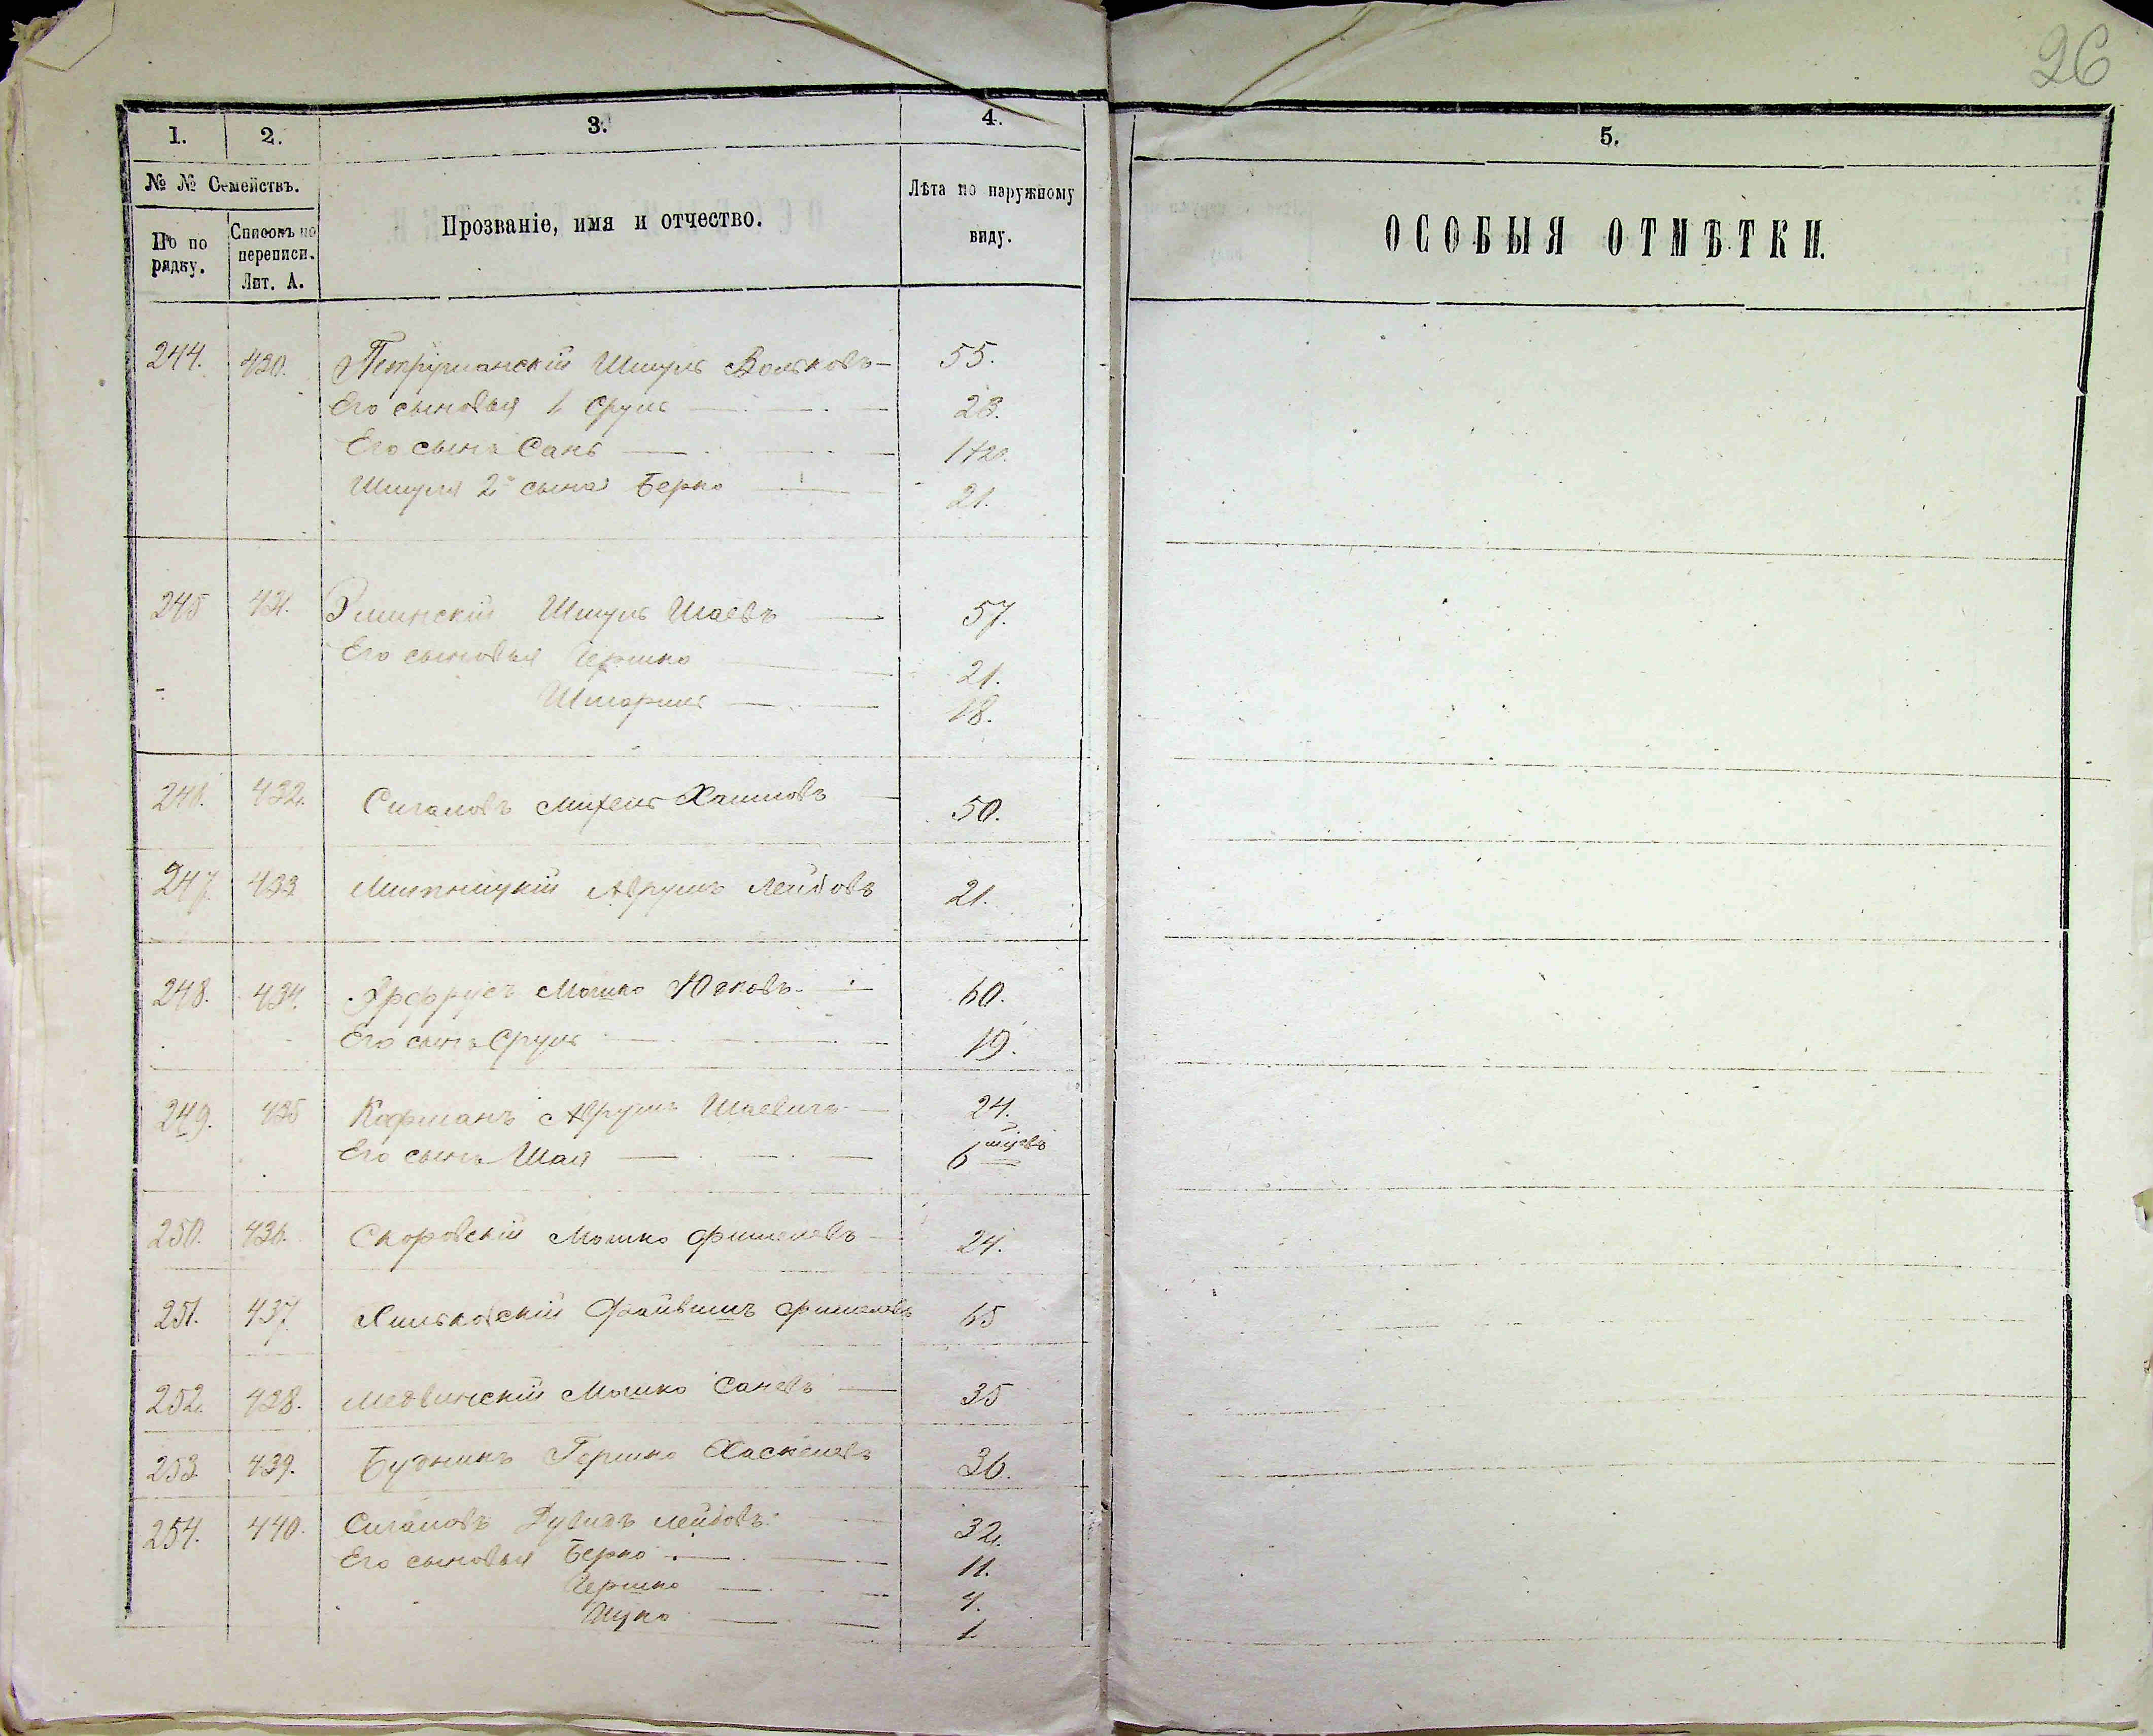 26
1. 2. 3. 4. 5.
№ № Семействъ.
По по рядку.
Списокъ по переписи. Лит. А.
Прозваніе, имя и отчество.
Лѣта по наружному виду.
ОСОБЫЯ ОТМѢТКИ.
244. 430. Петрушанскій Шмуль Вольковъ 55.
Его сыновья 1 Сруль 23.
Его сынъ Сань
Шмуля 2й сынъ Берко 21.
245 431. Шмуль Шаевъ 57.
Его сыновья Гершко 21.
Шмариль 18.
246. 432. Сигаловъ Михель Хаимовъ 50.
247. 433 Аврумъ Лейбовъ 21.
248. 434. Мошко 60.
Его сынъ Сруль 19.
249. 435 Кофманъ Аврумъ Шаевичъ 24.
Его сынъ Шая 6
250. 436. Скоровскій Мошко Фишелевъ 24.
251. 437 Хильковскій Файвишъ Фишелевъ 65
252. 438. Медвинскій Мошко Саневъ 35
253. 439. Будникъ Гершко Хаскелевъ 36.
254. 440. Сигаловъ Дувидъ Лейбовъ 32.
Его сыновья Берко 11.
Гершко 4.
Ицко 1